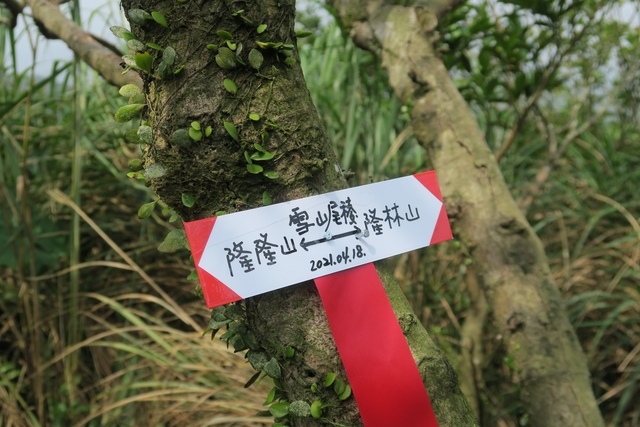 雪山尾稜
隆隆山 ↔ 隆林山
2021.04.18.